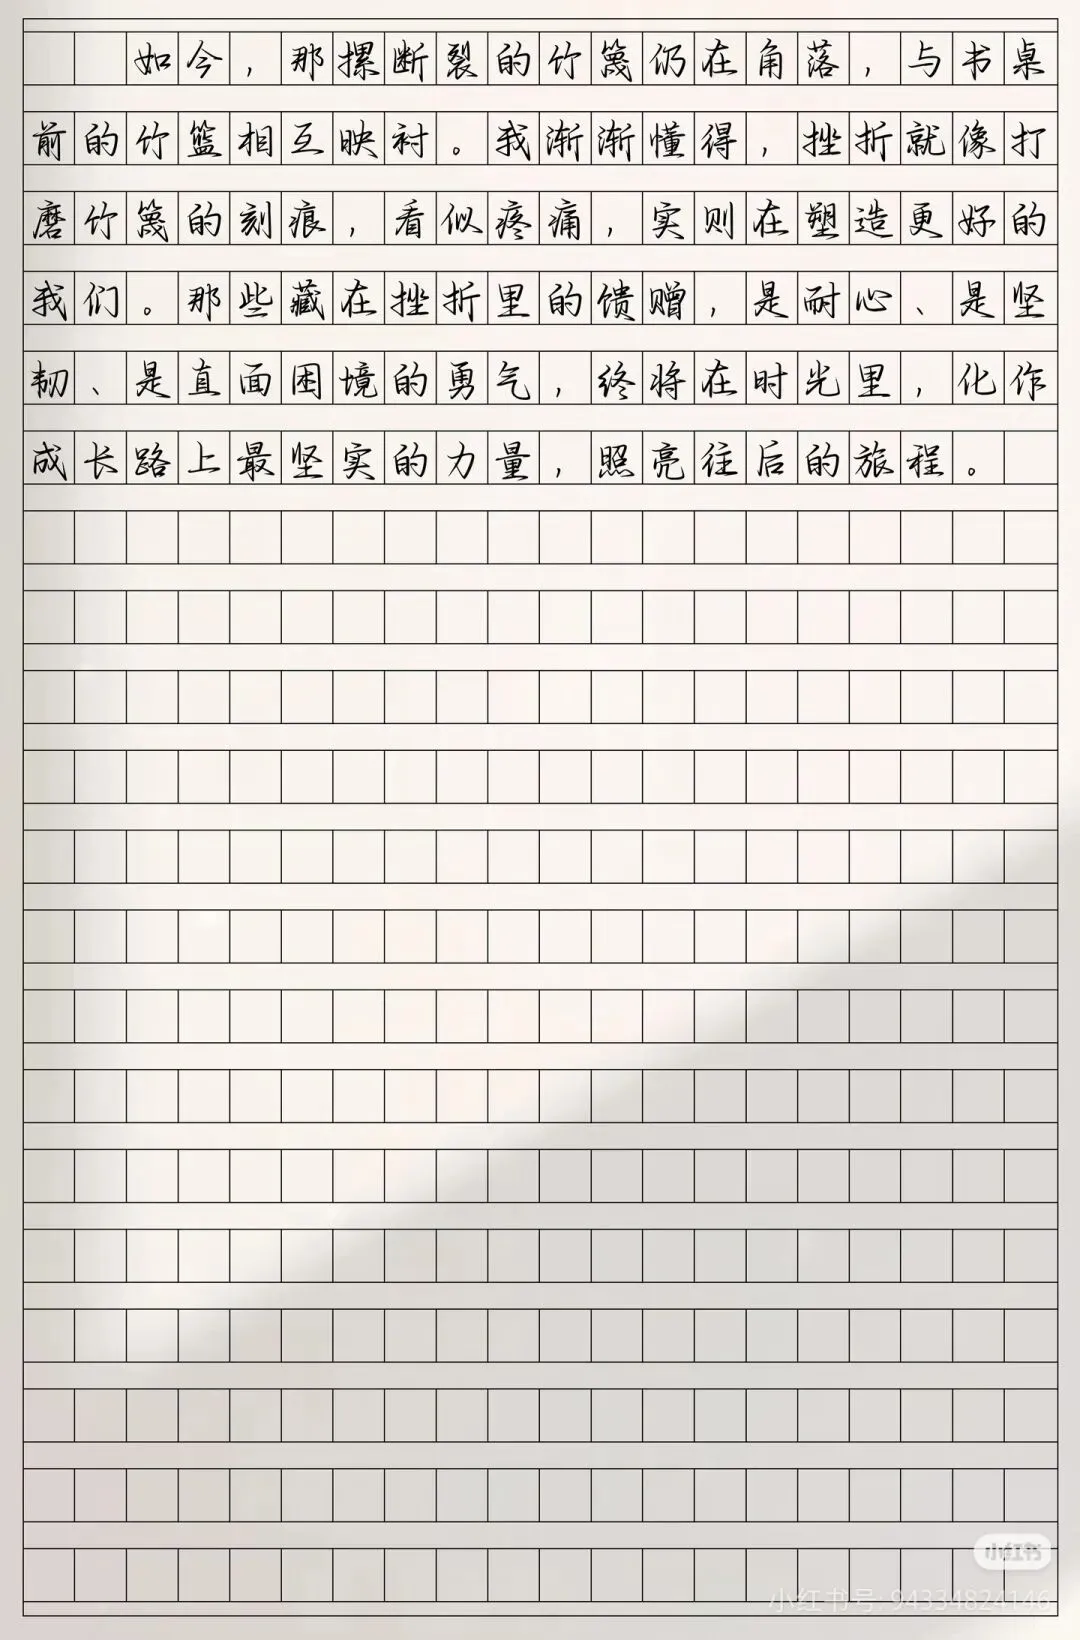 如今，那摞断裂的竹篾仍在角落，与书桌
前的竹篮相互映衬。我渐渐懂得，挫折就像打
磨竹篾的刻痕，看似疼痛，实则在塑造更好的
我们。那些藏在挫折里的馈赠，是耐心、是坚
韧、是直面困境的勇气，终将在时光里，化作
成长路上最坚实的力量，照亮往后的旅程。
小红书
小红书号: 94334824146